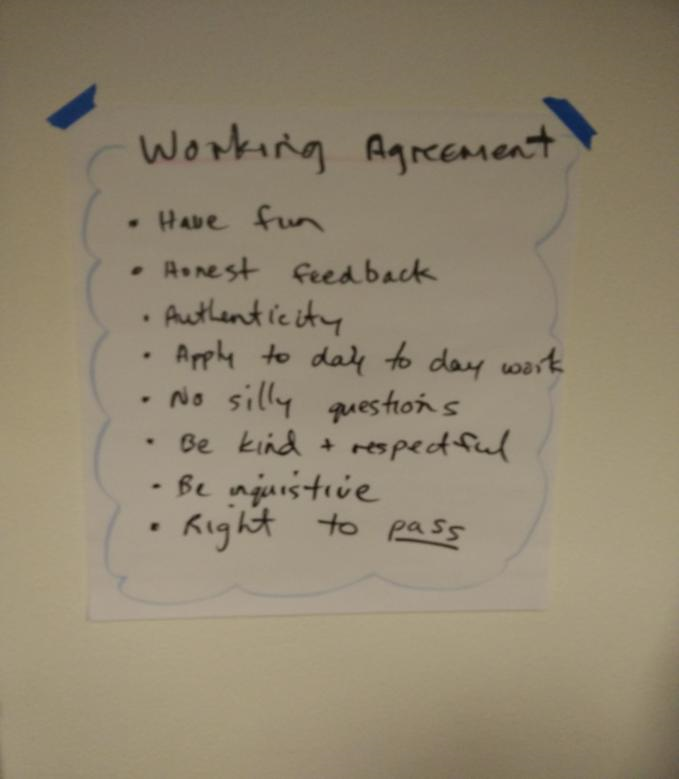 Working Agreement
• Have fun
• Honest feedback
• Authenticity
• Apply to day to day work
• No silly questions
• Be kind + respectful
• Be inquistive
• Right to pass